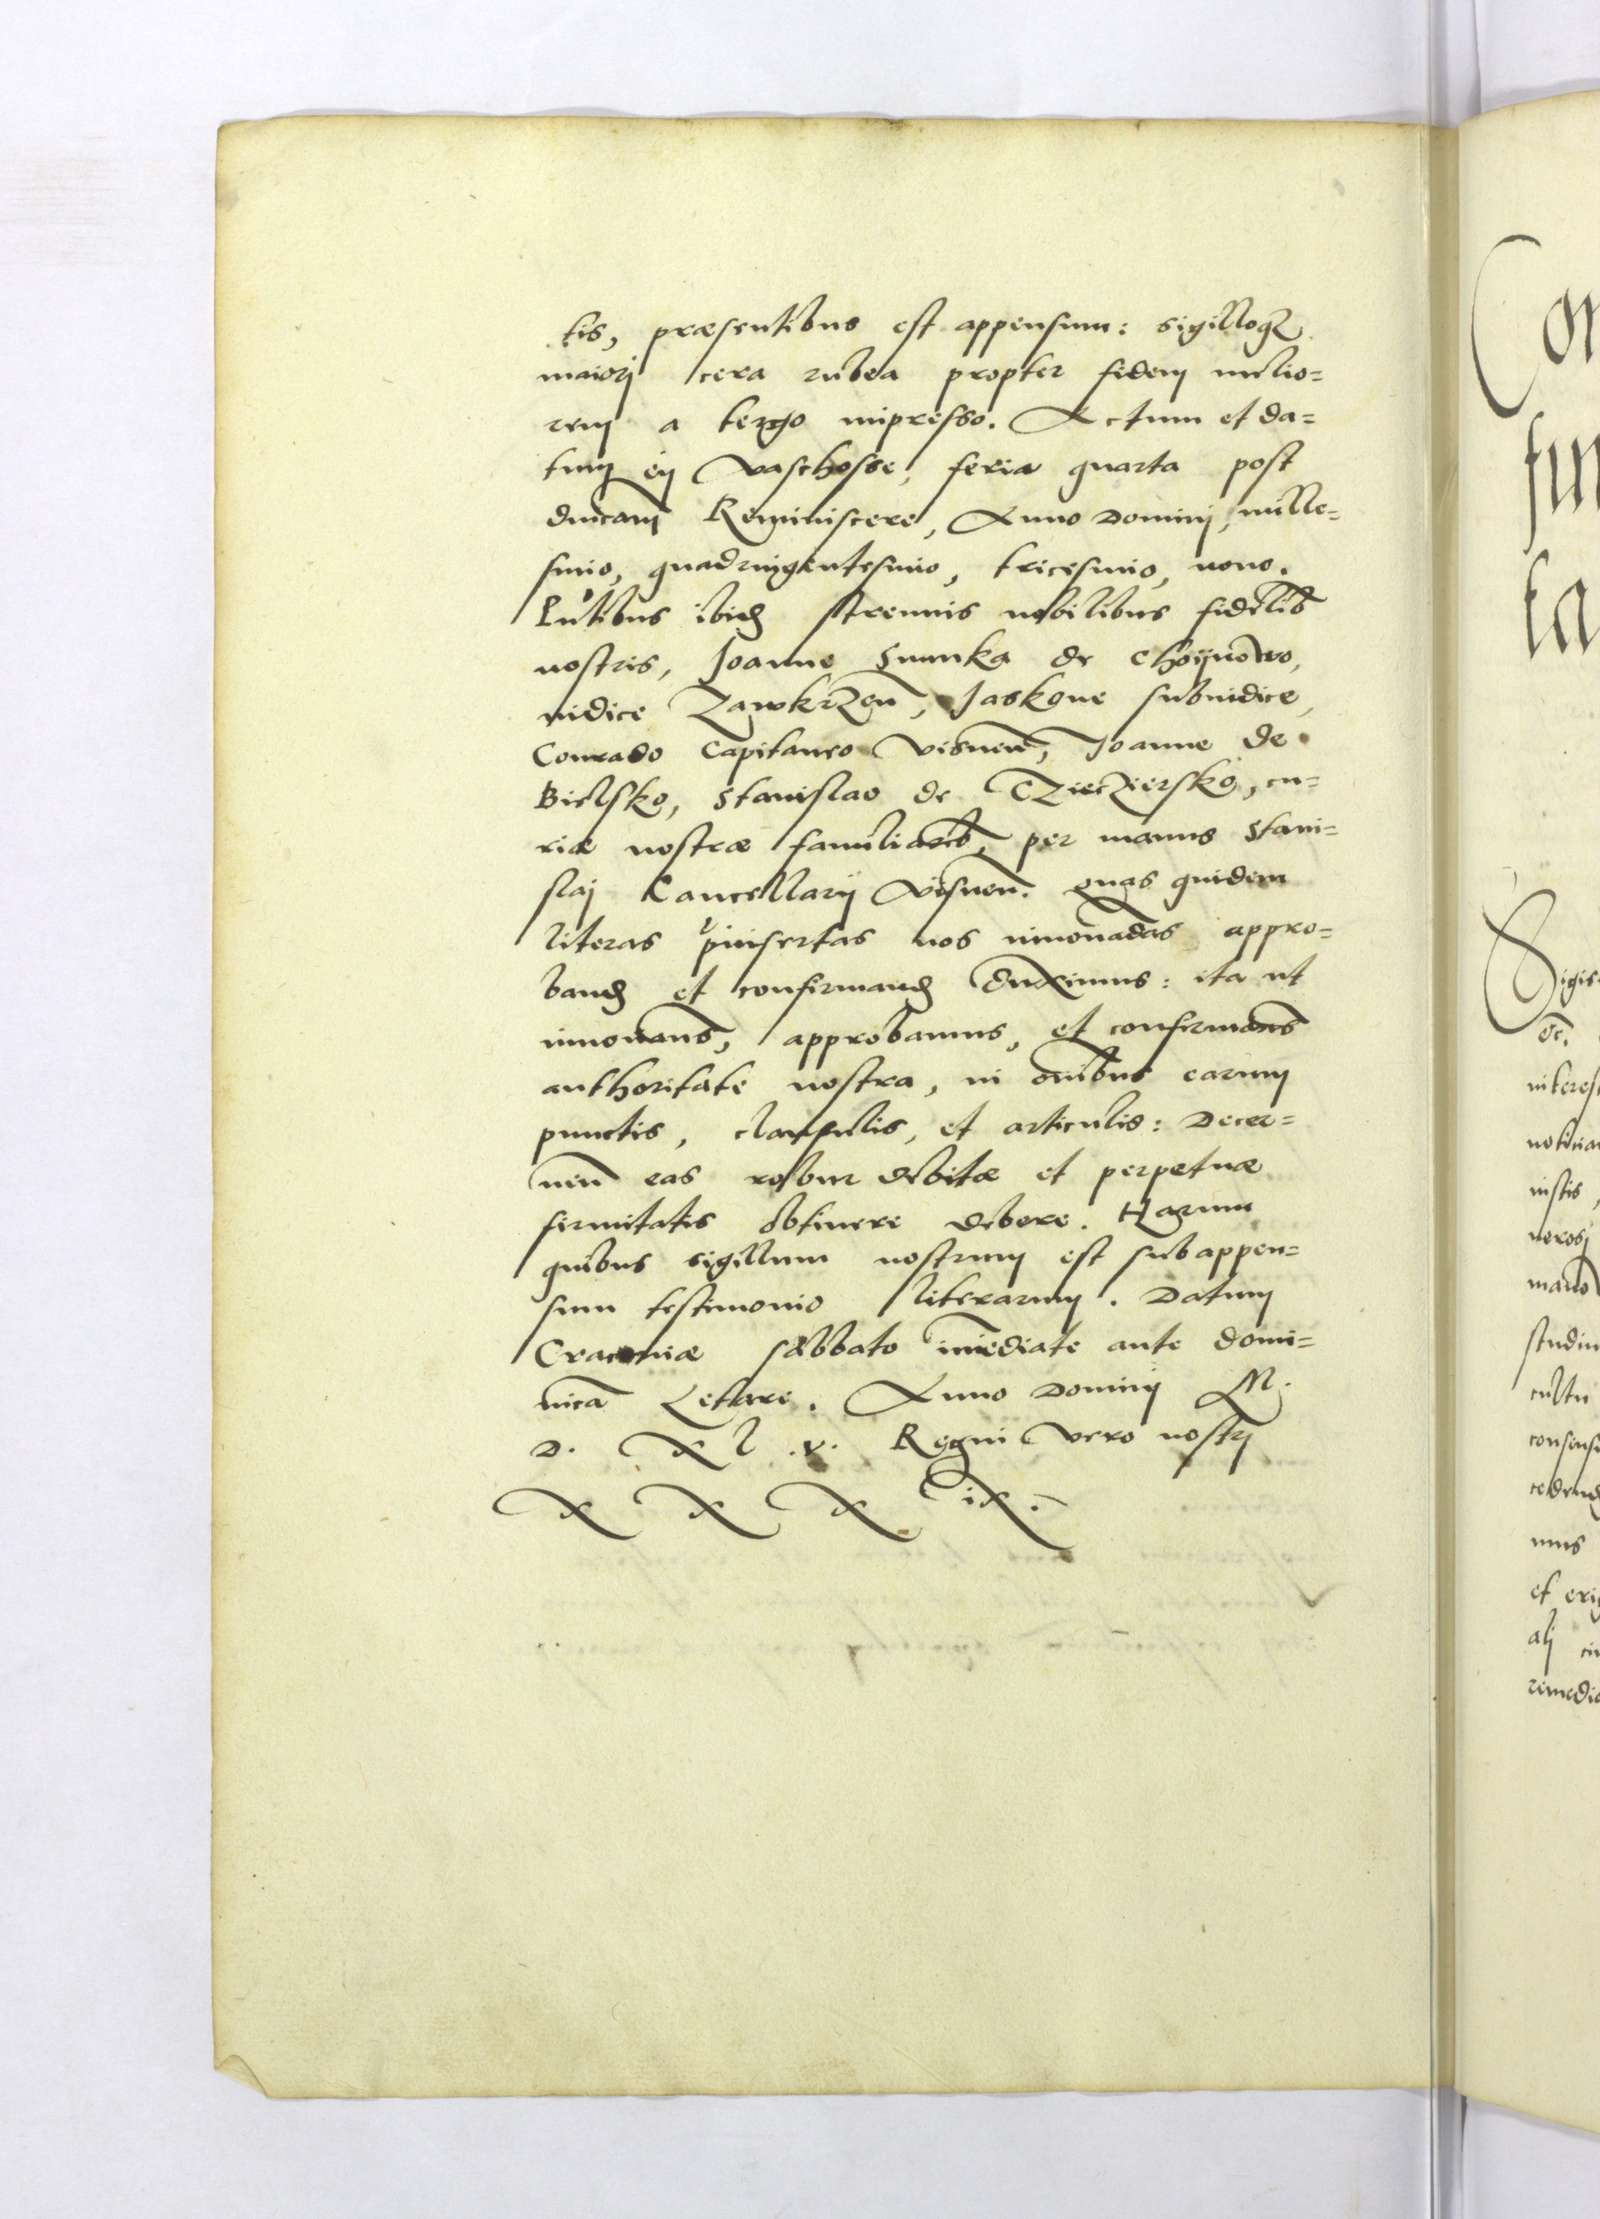 tis, præsentibus est appensum: sigilloq₃
maiorj cera rubea propter fidem melio=
rem a tergo impresso. Actum et da=
tum in Vaschosse, feria quarta post
dnicam Reminiscere, Anno Domini, mille=
simo, quadringentesimo, tricesimo, nono.
Pntibus ibid strenuis nobilibus fidelib
nostris, Joanne Sumka de Choijnowo,
iudice Zawkrzen, Jaskone subiudice,
Conrado Capitaneo Visnen, Joanne de
Bielsko, Stanislao de CZiecziersko, cu=
riæ nostræ familiarib, per manus Stani=
slaj Cancellarij Visnen. quas quidem
literas pinsertas nos innouadas appro=
band et confirmand duximus: ita ut
innouams, approbamus, et confirmams
authoritate nostra, in omibus earum
punctis, clausulis, et articulis: Decer=
nen eas robur debitæ et perpetuæ
firmitatis obtinere debere. Harum
quibus sigillum nostrum est subappen=
sum testimonio literarum. Datum
Cracouiæ sabbato imediate ante domi=
nica Letare. Anno Domini M.
D. X l .v. Regni vero nostrj
X X X ix.
Con
fir
ta
Sigis
Dei
interes
notitia
iustis,
nerosi
mario
studiu
cultu
consensu
cedend
mus
et erig
alj
remedio